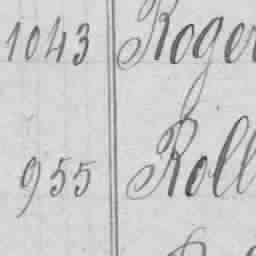 1043 Roger
955 Roll